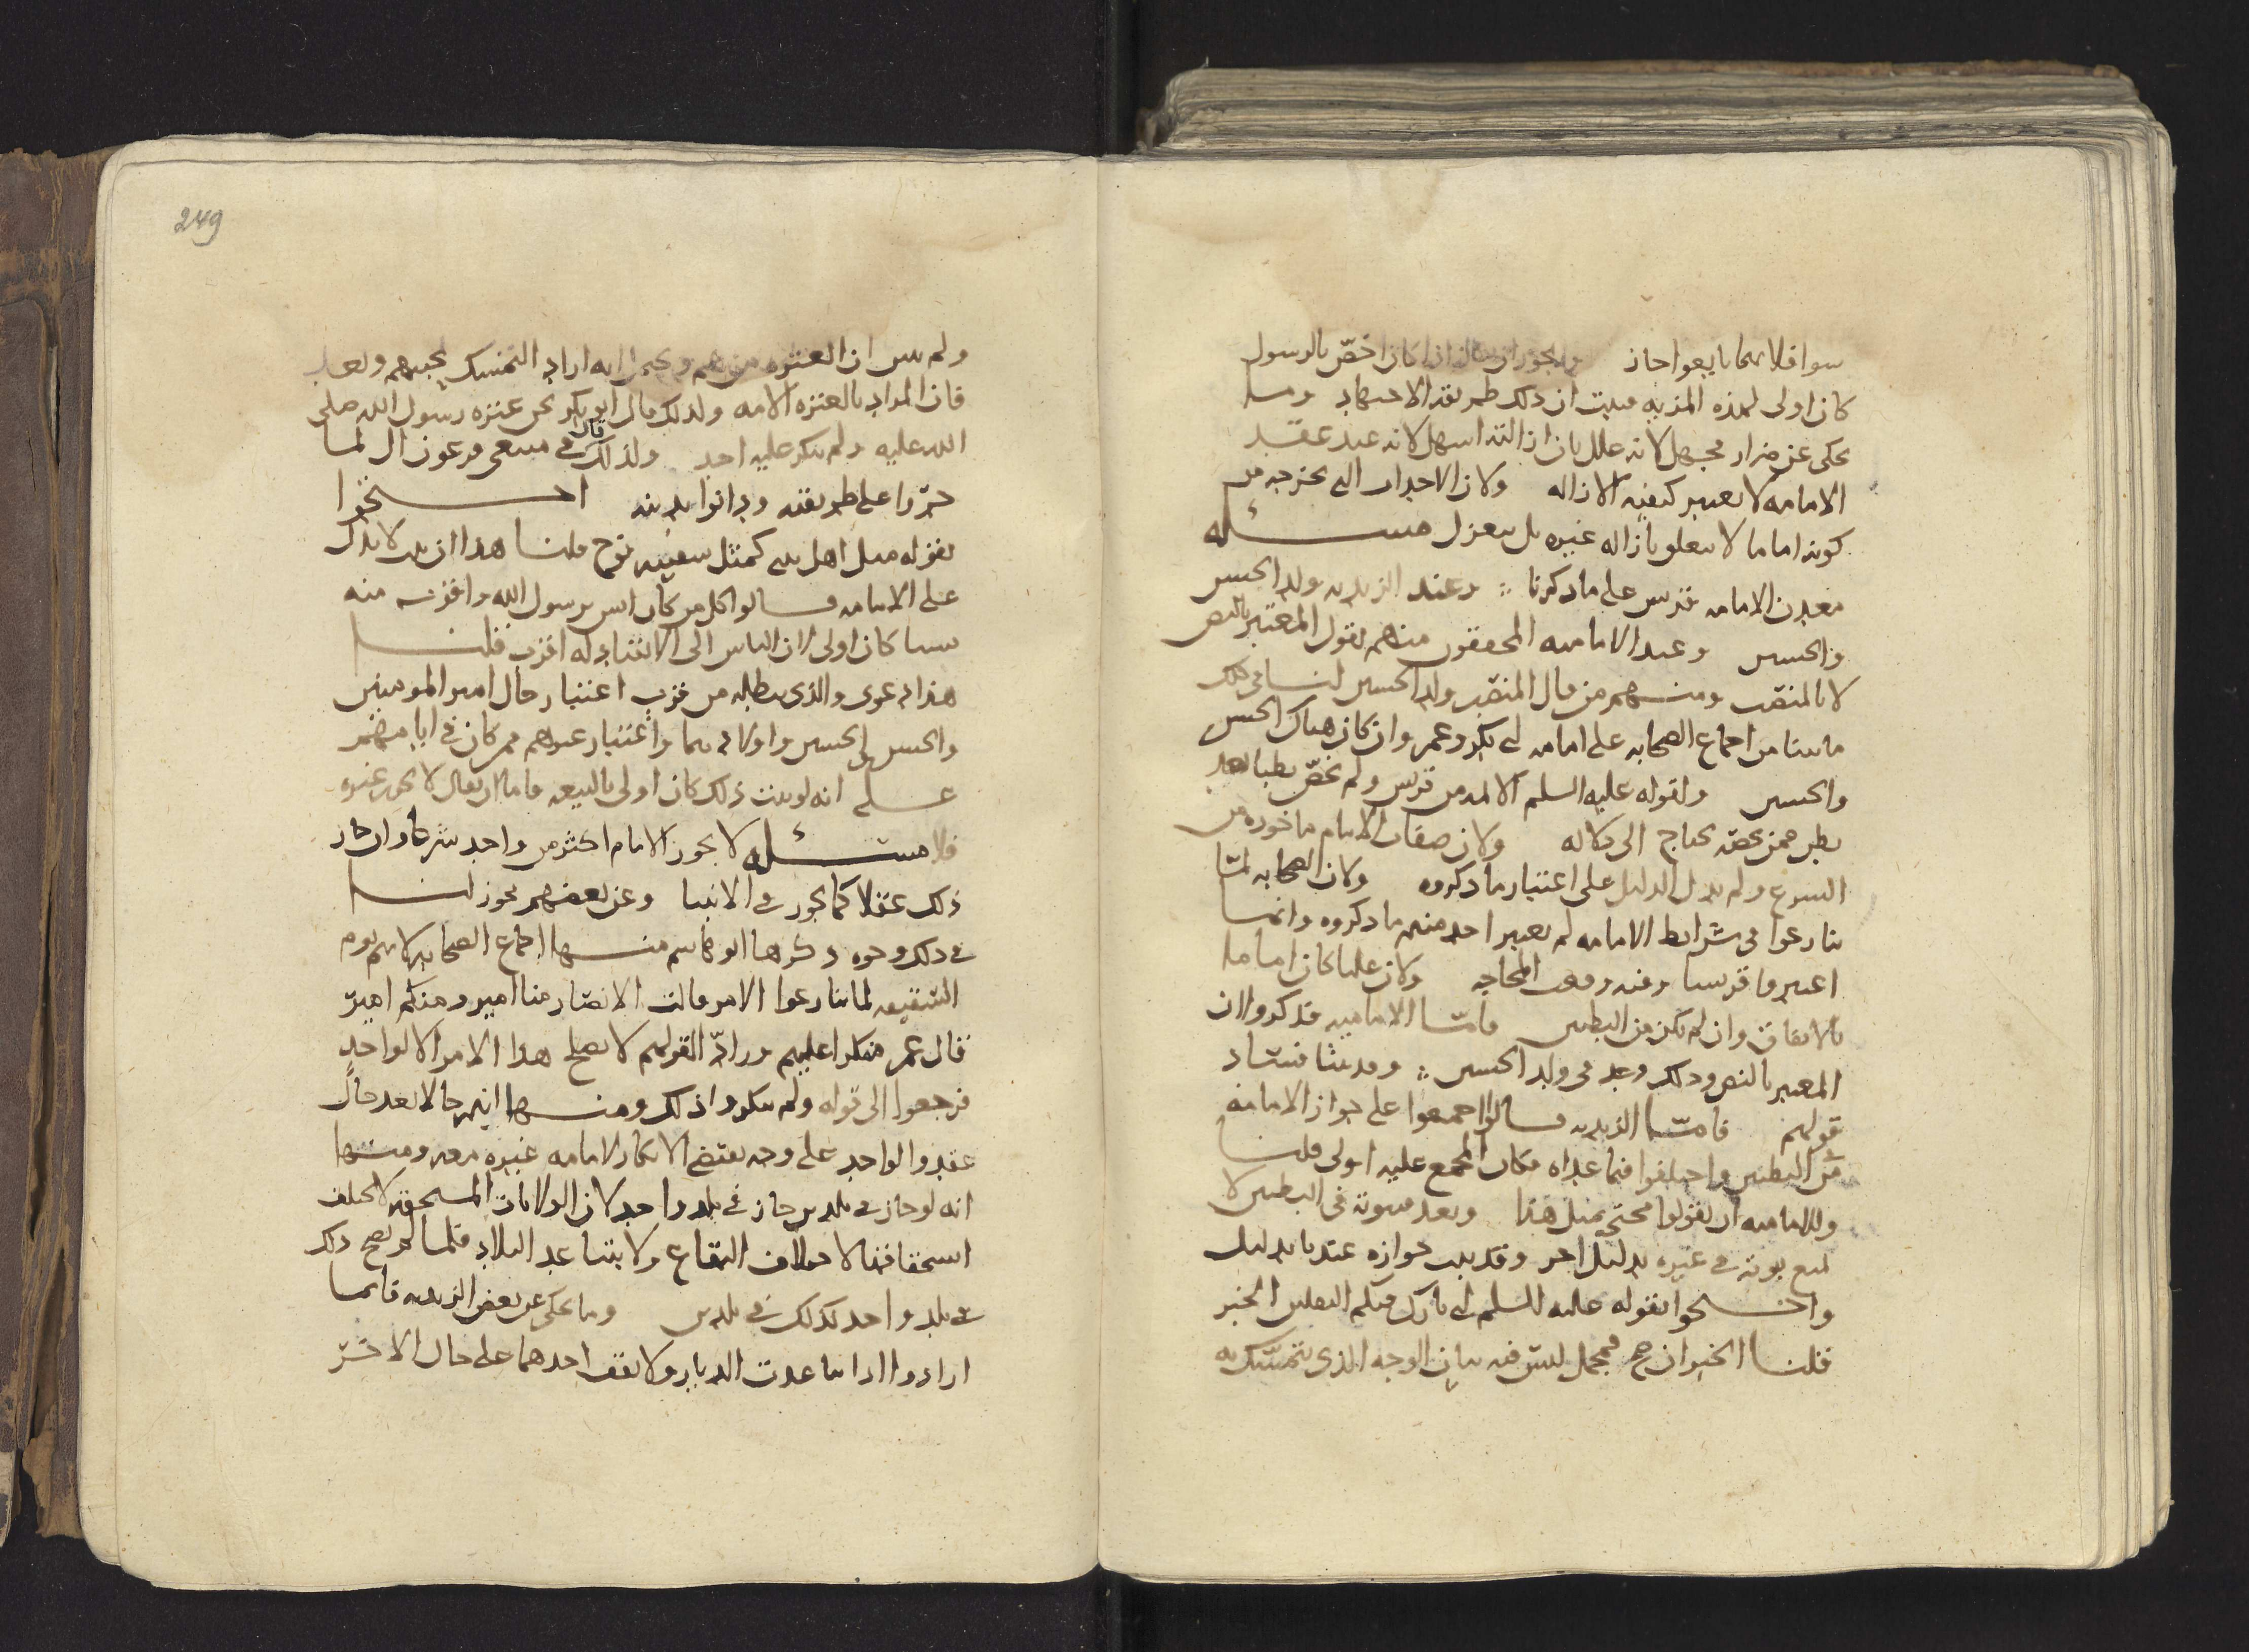 سوا فلا بهما بايعوا جاز ويجوز ان يقال اذا كان اخصّ بالرسول
كان اولى لهذه المزيه فيثبت ان ذلك طريقه الاجتهاد وما
يحكى عن ضرار فجهل لانه علل بان ازالته اسهل لانه عند عقد
الامامه لا يعتبر كيفيه الازاله ولان الاحداث التي يخرج به من
كونه اماما لا يتعلق بازاله غيره بل ينعزل مسئله
معدن الامامه قريش على ما ذكرنا وعند الزيديه ولد الحسن
والحسين وعند الاماميه المحققون منهم يقول المعتبر بالنص
لا بالمنصب ومنهم من قال المنصب ولد الحسين لنا في ذلك
ما بينا من اجماع الصحابه على امامه ابي بكر وعمر وان كان هناك الحسن
والحسين ولقوله عليه السلم الائمه من قريش ولم يخصّ بطنا بعد
بطن فمن يخصّه يحتاج الى دلاله ولان صفات الامام ماخوذه من
الشرع ولم يدل الدليل على اعتبار ما ذكروه ولان الصحابه لمّا
تنازعوا في شرائط الامامه لم يعتبر احد منهم ما ذكروه وانما
اعتبروا قريشا وفيه وقعت المحاجه ولان عليا كان اماما
بالاتفاق وان لم يكن من البطنين فامّا الاماميه فذكروا ان
المعتبر بالنص وذلك وجد في ولد الحسين وقد بينا فساد
قولهم فامّا الزيديه قالوا اجمعوا على جواز الامامه
في البطنين واختلفوا فيما عداه فكان المجمع عليه اولى قلنا
وللاماميه ان يقولوا محتجّ بمثل هذا وبعد فثبوته في البطنين لا
يمنع ثبوته في غيره بدليل اخر وقد ثبت جوازه عندنا بدليل
واحتجوا بقوله عليه السلم اني تارك فيكم الثقلين الخبر
قلنا الخبر ان صح فمجمل ليس فيه بيان الوجه الذي يتمسّك به
249
ولم يبين ان العتره من هم ويحتمل انه اراد التمسك بحبهم وبعد
فان المراد بالعتره الامه ولذلك قال ابو بكر نحن عتره رسول الله صلى
الله عليه ولم ينكر عليه احد ولذلك قال في متبعي فرعون ال لما
جرّوا على طريقته ودانوا بدينه احتجوا
بقوله مثل اهل بيتي كمثل سفينه نوح قلنا هذا ان ثبت لا يدل
على الامامه قالوا كل من كان امس برسول الله واقرب منه
نسبا كان اولى لان الناس الى الانقياد له اقرب قلنا
هذا دعوى والذي يبطله من قرب اعتبار حال امير المومنين
والحسن والحسين واولادهما واعتبار غيرهم ممن كان في ايامهم
علم انه لو ثبت ذلك كان اولى بالبيعه فاما ان يقال لا يجوز غيره
فلا مسئله لا يجوز الامام اكثر من واحد شرعا وان جاز
ذلك عقلا كما يجوز في الانبيا وعن بعضهم يجوز لنا
في ذلك وجوه ذكرها ابو هاشم منها اجماع الصحابه لانهم يوم
السقيفه لما تنازعوا الامر قالت الانصار منا امير ومنكم امير
قال عمر منكرا عليهم ورادّا لقولهم لا يصلح هذا الامر الا لواحد
فرجعوا الى قوله ولم ينكروا ذلك ومنها انهم حالا بعد حال
عقدوا لواحد على وجه يقتضي الانكار لامامه غيره معه ومنها
انه لو جاز في بلدين جاز في بلد واحد لان الولايات المستحقه لا يختلف
استحقاقها لاختلاف البقاع ولا بتباعد البلاد فلما لم يصح ذلك
في بلد واحد كذلك في بلدين وما يحكى عن بعض الزيديه فانما
ارادوا اذا تباعدت الديار ولا يقف احدهما على حال الاخر